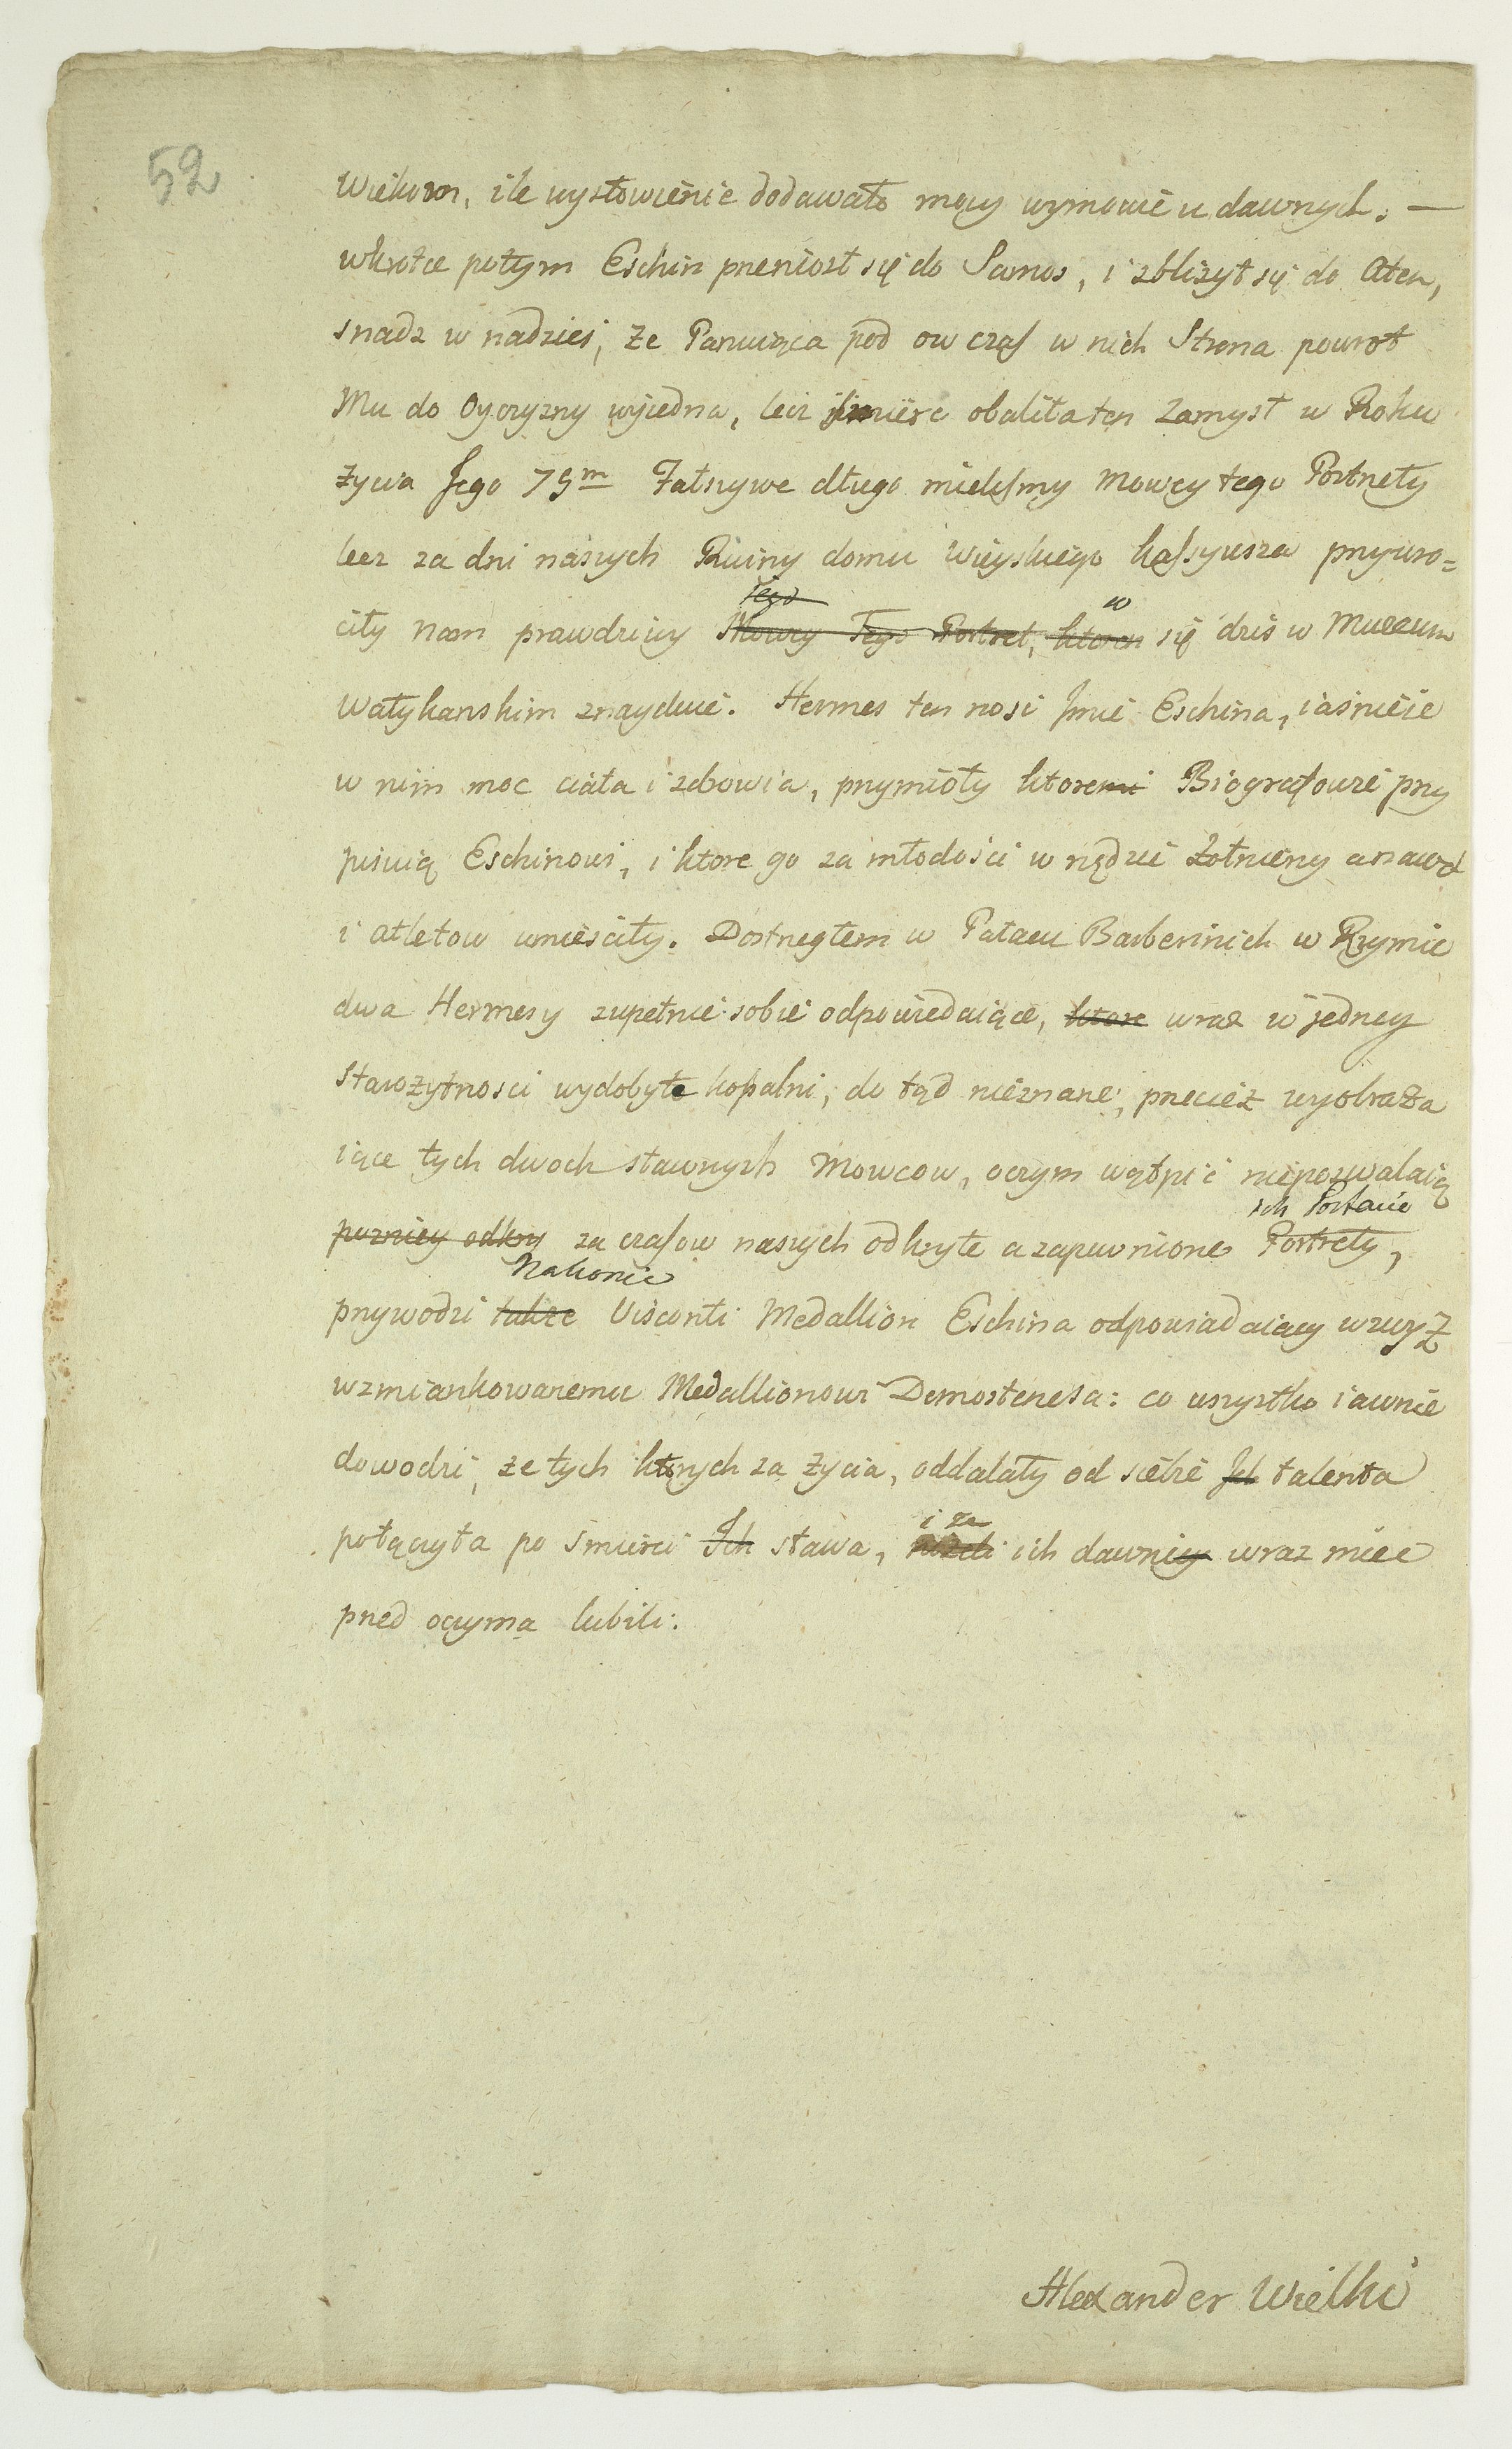 52
Wiekom, ile wysłowienie dodawało mocy wymowie u dawnych. —
wkrotce potym Eschin przeniosł się do Samos, i zbliżył się do Aten,
snadz w nadziei, że Panuiąca pod ow czas w nich Strona powrot
Mu do Oyczyzny wyiedna, lecz smierc obaliła ten zamysł w Roku
życia Jego 75m Fałszywe długo mielismy Mowcy tego Portrety
lecz za dni naszych Ruiny domu Wieyskiego Kassyusza przywro=
Jego w
ciły nam prawdziwy Mowcy Tego Portret, ktoren się dzis w Muzeum
Watykanskim znayduie. Hermes ten nosi Jmie Eschina, iasnieie
w nim moc ciała i zdrowia, przymioty ktoremi Biografowie przy
pisuią Eschinowi, i ktore go za młodosci w rzędzie Żołnierzy a nawet
i Atletow umiesciły. Dostrzegłem w Pałacu Barberinich w Rzymie
dwa Hermesy zupełnie sobie odpowiedaiące, ktore wraz w jedney
Starożytnosci wydobyte kopalni, do tąd nieznane, przecież wyobraża
iące tych dwoch sławnych Mowcow, oczym wątpić niepozwalaią
ich Postacie
pozniey odkry za czasow naszych odkryte a zapewnione Portrety,
Nakoniec
przywodzi także Visconti Medallion Eschina odpowiadaiący wzwyż
wzmiankowanemu Medallionowi Demostenesa: co wszystko iawnie
dowodzi, ze tych ktorych za życia, oddalały od siebie Jch talenta
i że
połączyła po smierci Jch sława, ich dawniey wraz miec
przed oczyma lubili.
Alexander Wielki